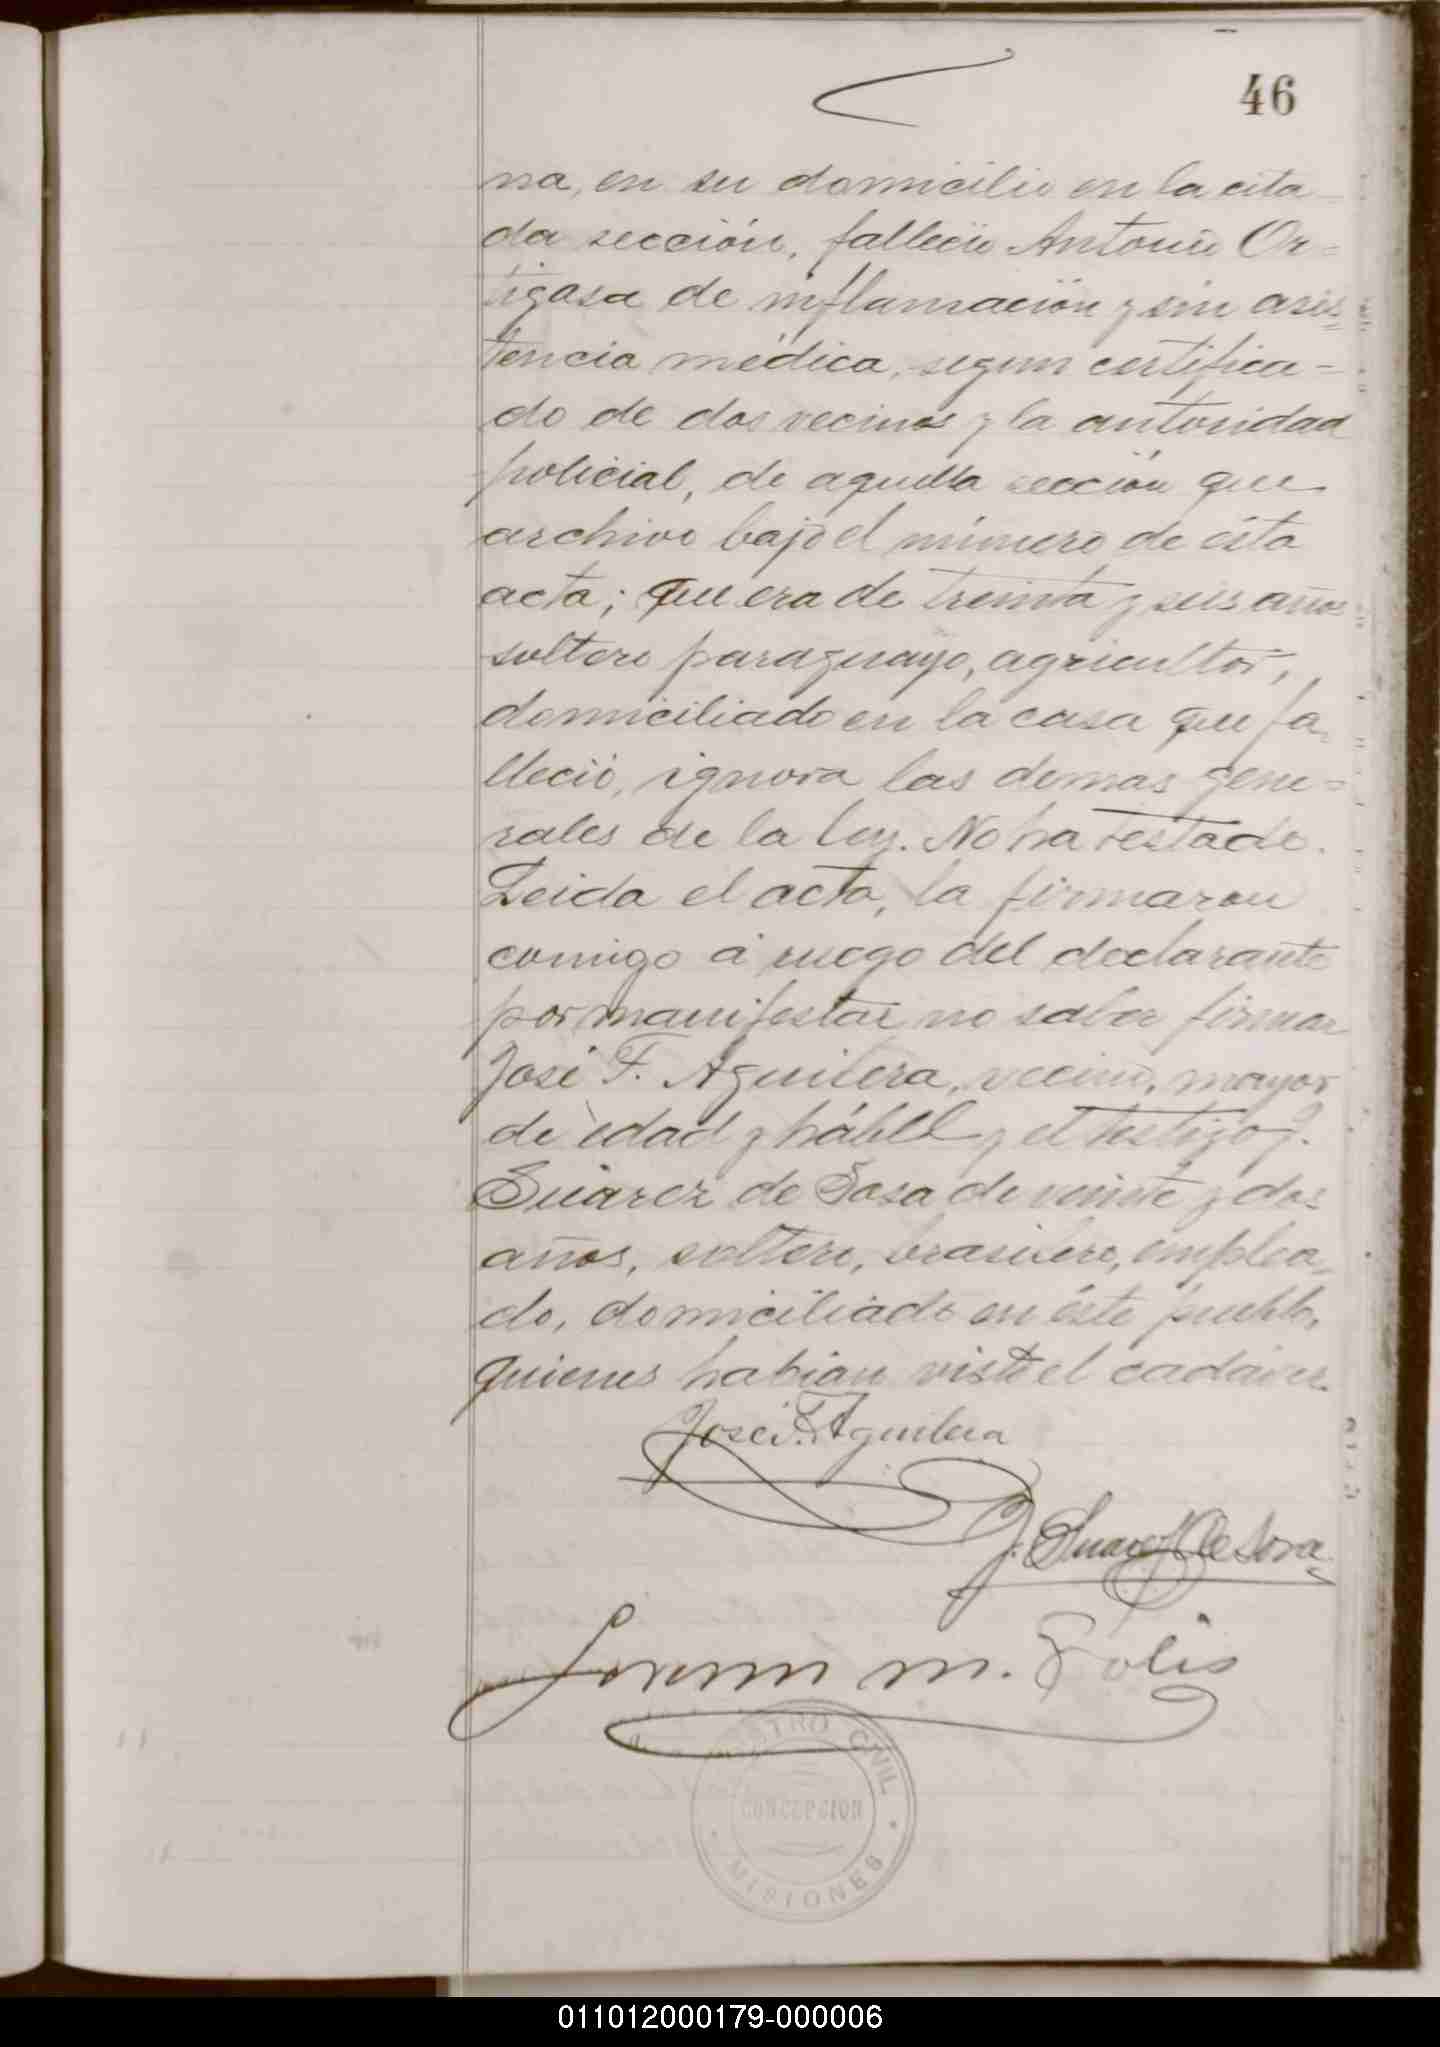 46
na, en su domicilio en la cita
da sección, falleció Antonio Or=
tigosa de inflamación y sin asis=
tencia médica, segun certifica-
do de dos vecinos y la autoridad
policial, de aquella sección que
archivo bajo el número de ésta
acta; que era de treinta y seis años
soltero paraguayo, agricultor,
domiciliado en la casa que fa-
lleció, ignora las demas gene-
rales de la ley. No ha testado.
Leida el acta, la firmaron
comigo á ruego del declarante
por manifestar no saber firmar
José F. Aguilera, vecino, mayor
de edad y hábil y el testigo J.
Suarez de Sosa de veinte y dos
años, soltero, brasilero, emplea-
do, domiciliado en éste pueblo,
quienes habian visto el cadáver.
José F. Aguilera
J. Suarez de Sosa
M. Solis
REGISTRO CIVIL
CONCEPCION
MISIONES
011012000179-000006